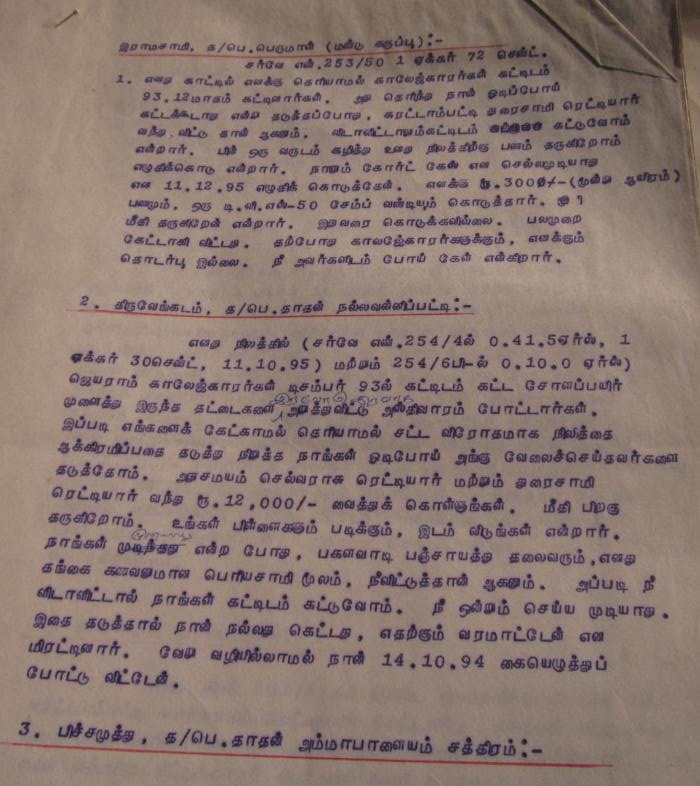 இராமசாமி, த/பெ.பெருமாள் (மண்டு கருப்பு):-
சர்வே எண்.253/50 1 ஏக்கர் 72 சென்ட்.
1. எனது காட்டில் எனக்கு தெரியாமல் காலேஜ்காரர்கள் கட்டிடம்
93.12மாதம் கட்டினார்கள். அது தெரிந்து நான் ஓடிப்போய்
கட்டக்கூடாது என்று தடுத்தப்போது, கரட்டாம்பட்டி துரைசாமி ரெட்டியார்
வந்து, விட்டு தான் ஆகணும். விடாவிட்டாலும்கட்டிடம் கட்டுவோம்
என்றார். பின் ஒரு வருடம் கழித்து உனது நிலத்திற்கு பணம் தருகிறோம்
எழுதிக்கொடு என்றார். நானும் கோர்ட் கேஸ் என செல்லமுடியாது
என 11.12.95 எழுதிக் கொடுத்தேன். எனக்கு ரூ.3000/-(மூன்று ஆயிரம்)
பணமும், ஒரு டி.வி.எஸ்-50 சேம்ப் வண்டியும் கொடுத்தார்.
மீதி தருகிறேன் என்றார். இதுவரை கொடுக்கவில்லை. பலமுறை
கேட்டாகி விட்டது. தற்போது காலஜேகாரர்களுக்கும், எனக்கும்
தொடர்பு இல்லை. நீ அவர்களிடம் போய் கேள் என்கிறார்.
2. திருவேங்கடம், த/பெ.தாதன் நல்லவன்னிப்பட்டி:-
எனது நிலத்தில் (சர்வே எண்.254/4ல் 0.41.5ஏர்ஸ், 1
ஏக்கர் 30சென்ட், 11.10.95) மற்றும் 254/6பி-ல் 0.10.0 ஏர்ஸ்)
ஜெயராம் காலேஜ்காரர்கள் டிசம்பர் 93ல் கட்டிடம் கட்ட சோளப்பயிர்
முளைத்து இருந்த தட்டைகளை அறுத்துவிட்டு அஸ்திவாரம் போட்டார்கள்.
இப்படி எங்களைக் கேட்காமல் தெரியாமல் சட்ட விரோதமாக நிலத்தை
ஆக்கிரமிப்பதை தடுத்து நிறுத்த நாங்கள் ஓடிபோய் அங்கு வேலைச்செய்தவர்களை
தடுத்தோம். அதுசமயம் செல்வராசு ரெட்டியார் மற்றும் துரைசாமி
ரெட்டியார் வந்து ரூ.12,000/- வைத்துக் கொள்ளுங்கள். மீதி பிறகு
தருகிறோம். உங்கள் பிள்ளைகளும் படிக்கும், இடம் விடுங்கள் என்றார்.
நாங்கள் முடியாது என்ற போது, பகளவாடி பஞ்சாயத்து தலைவரும்,எனது
தங்கை கணவனுமான பெரியசாமி மூலம், நீவிட்டுத்தான் ஆகணும். அப்படி நீ
விடாவிட்டால் நாங்கள் கட்டிடம் கட்டுவோம். நீ ஒன்றும் செய்ய முடியாது.
இதை தடுத்தால் நான் நல்லது கெட்டது, எதற்கும் வரமாட்டேன் என
மிரட்டினார். வேறு வழியில்லாமல் நான் 14.10.94 கையெழுத்துப்
போட்டு விட்டேன்.
3. பிச்சமுத்து, த/பெ.தாதன் அம்மாபாளையம் சத்திரம்:-